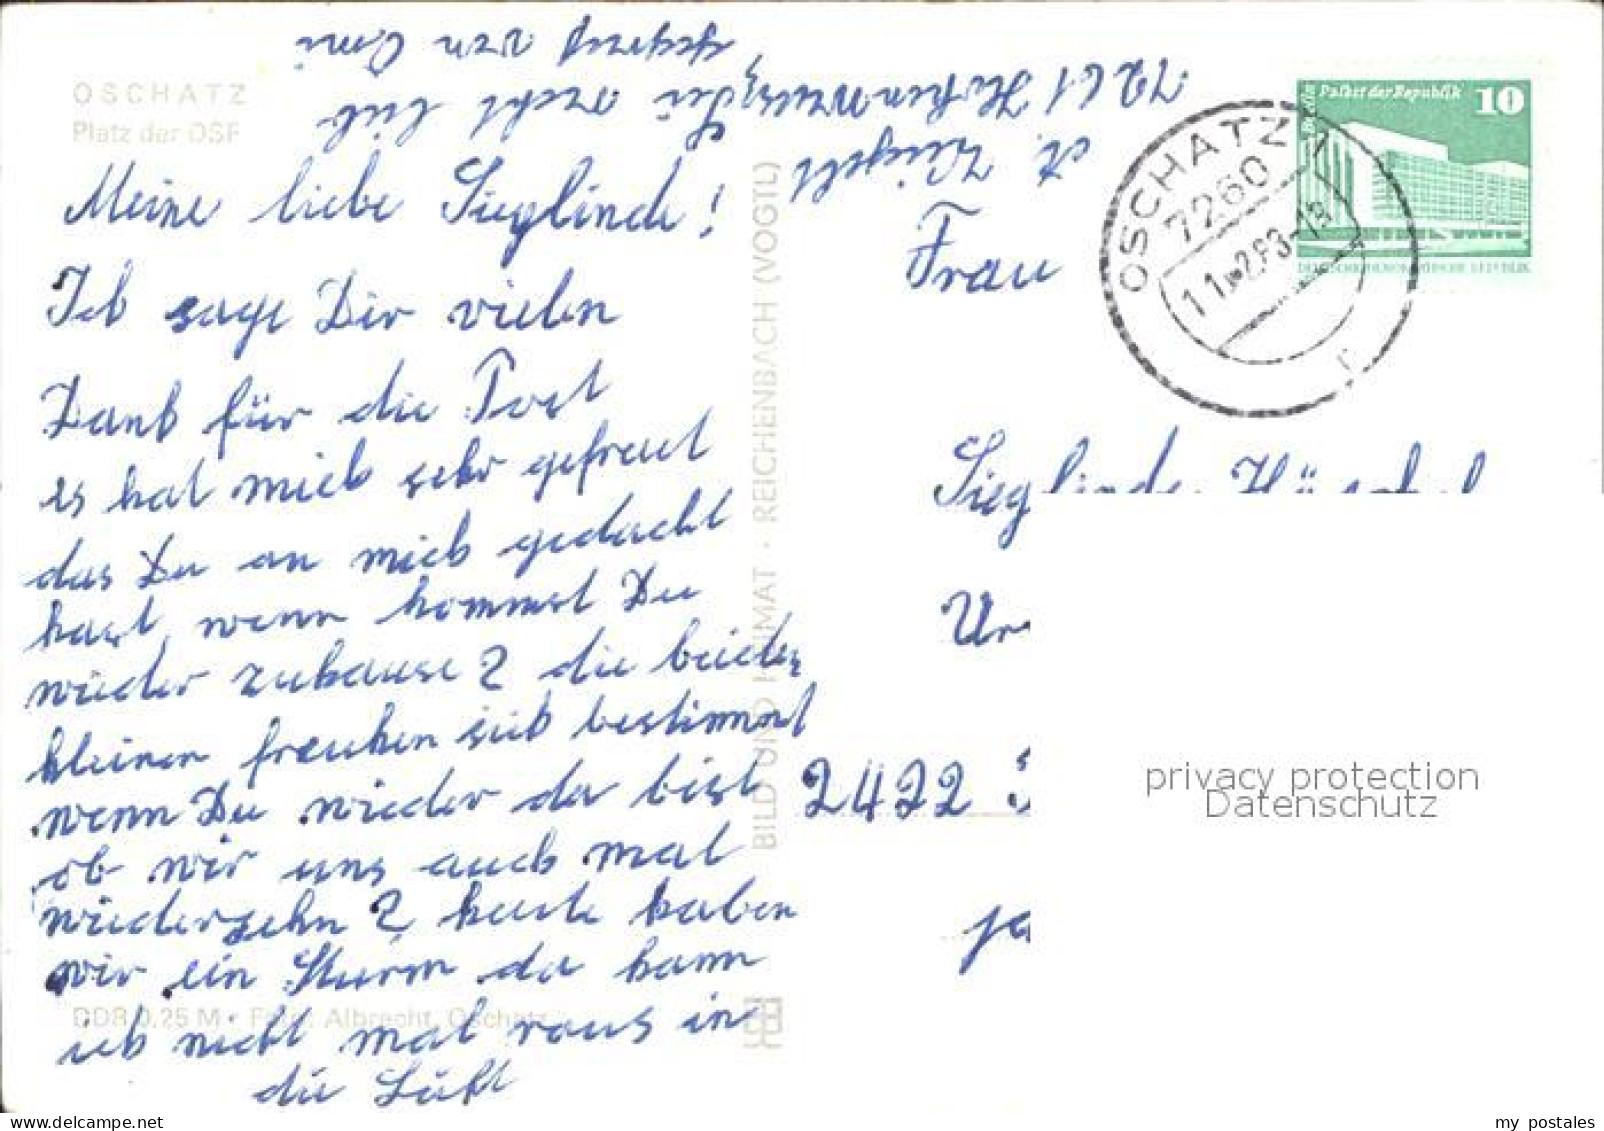 OSCHATZ
Platz der DSF
Meine liebe Sieglinde!
Ich sage Dir vielen
Dank für die Post
es hat mich sehr gefreut
das Du an mich gedacht
hast, wenn kommst Du
wieder zuhause? die beiden
kleinen freuhen sich bestimmt
wenn Du wieder da bist
ob wir uns auch mal
wiedersehn? heute haben
wir ein Sturm da kann
ich nicht mal raus in
die Luft
Sei recht lieb
gegrüß von Omi
A.
7261
DDR 0,25 M · Foto: Albrecht, Oschatz
BILD UND HEIMAT · REICHENBACH (VOGTL)
Berlin Palast der Republik 10
DEUTSCHE DEMOKRATISCHE REPUBLIK
OSCHATZ 1
7260
11.-2.83-18
r
Frau
Sieglinde
2422
privacy protection
Datenschutz
my postales